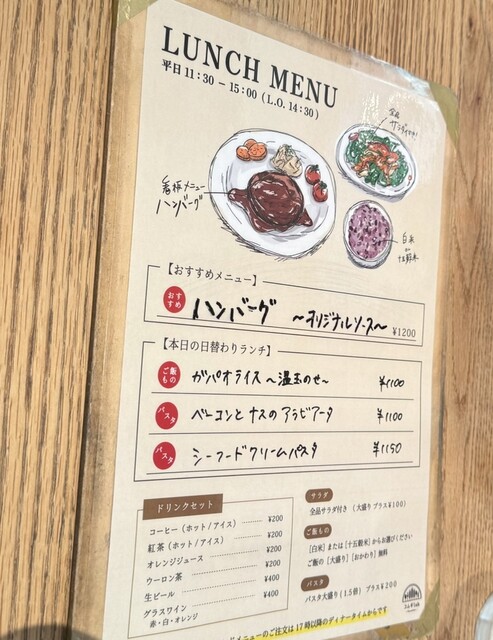 LUNCH MENU
平日 11:30 – 15:00 (L.O. 14:30)
全品
サラダ付き!
看板メニュー
ハンバーグ
白米
or
十五穀米
【おすすめメニュー】
おすすめ ハンバーグ ～オリジナルソース～ ¥1200
【本日の日替わりランチ】
ご飯もの ガパオライス～温玉のせ～ ¥1100
パスタ ベーコンとナスのアラビアータ ¥1100
パスタ シーフードクリームパスタ ¥1150
ドリンクセット
コーヒー（ホット/アイス） ¥200
紅茶（ホット/アイス） ¥200
オレンジジュース ¥200
ウーロン茶 ¥200
生ビール ¥400
グラスワイン ¥400
赤・白・オレンジ
サラダ
全品サラダ付き （大盛り プラス¥100）
ご飯もの
[白米] または [十五穀米] からお選びください
ご飯の [大盛り] [おかわり] 無料
パスタ
パスタ大盛り（1.5倍） プラス¥200
メニューのご注文は17時以降のディナータイムからです